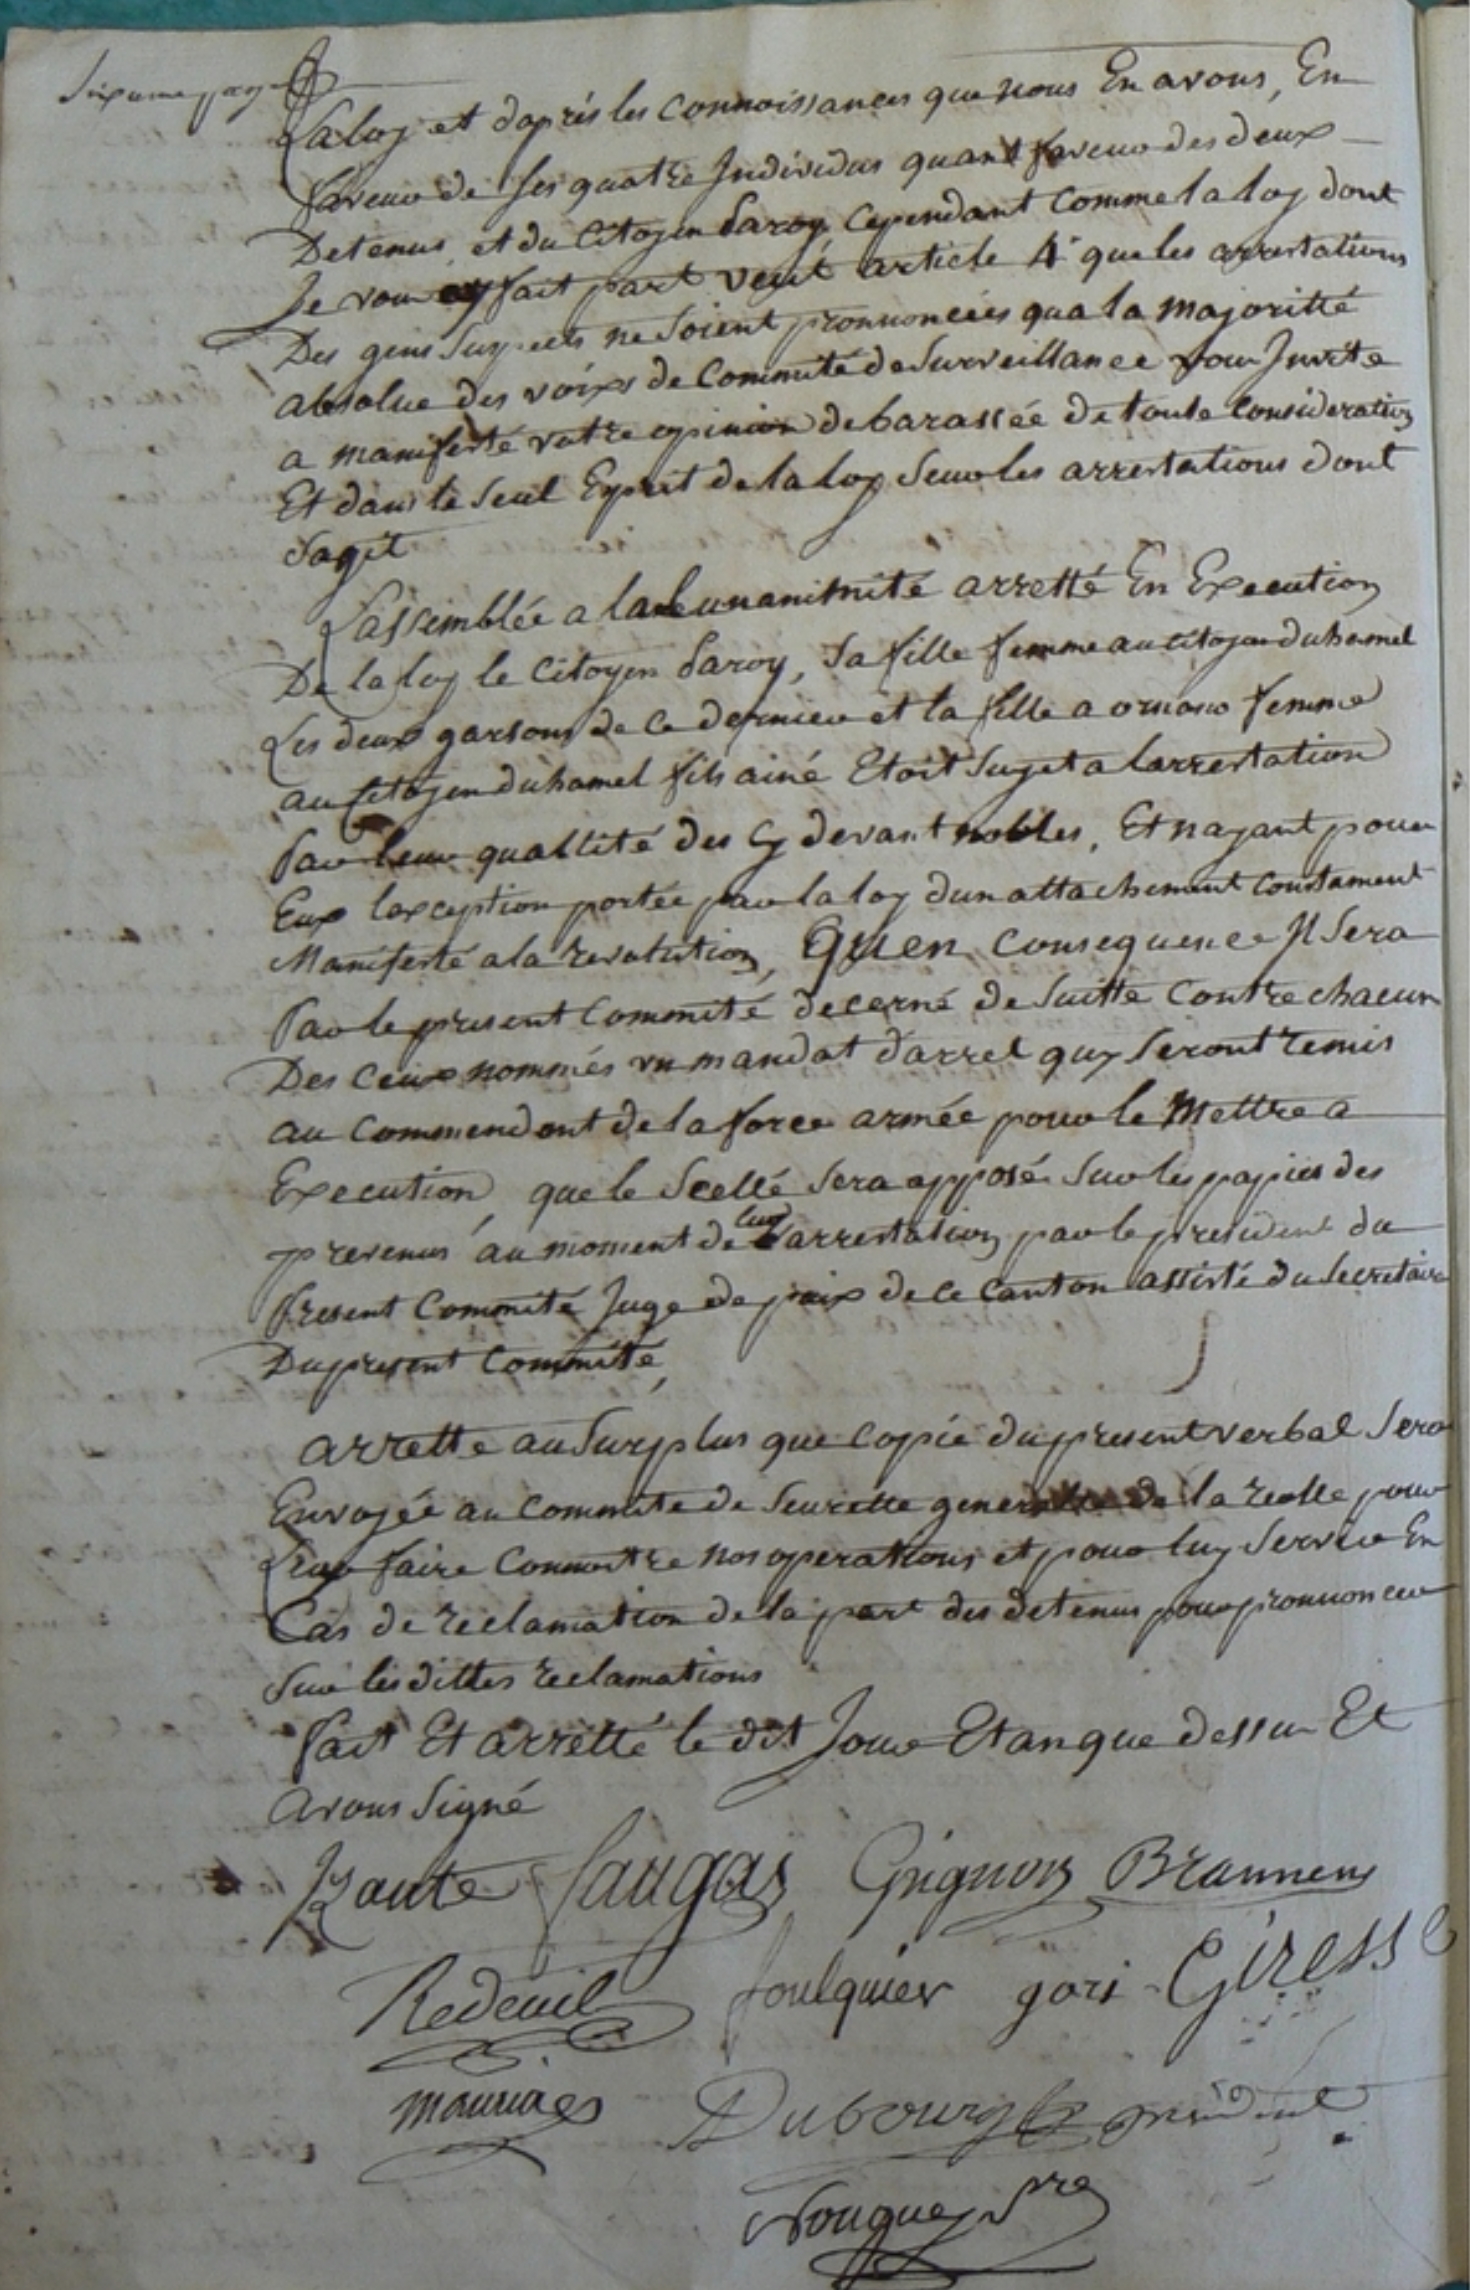 Sixieme page
La loy et daprés les connoissances que nous En avons, En
faveur de ses quatre Individus quant faveur des deux
Detenus et du Citoyen Paroy, Cependant Comme la loy dont
Je vous ay fait part veut article 4 que les arrestations
Des gens Suspects ne Soient prononcées qua la majoritté
absolue des voix de Commité de Surveillance vous Invite
a manifesté votre opinion debarassée de toute Consideration
Et dans le Seul Esprit de la loy Seur les arrestations dont
Sagit
Lassemblée a la unanimité arretté En Execution
De la loy le Citoyen Paroy, Sa fille femme au Citoyen duhamel
Les deux garsons de Ce dernier et la fille a ornano femme
au Citoyen duhamel fils ainé Etoit Sujet a larrestation
Par leur quallité des Cy devant nobles, Et nayant pour
Eux lexception portée par la loy dun attachement Constament
Manifesté a la revolution, Quen Consequence Il Sera
Par le present Commité decerné de Suitte Contre chacun
Des Ceux nommés un mandat darret quy Seront remis
au Commendont de la force armée pour le Mettre a
Execution que le Scellé Sera apposé Sur les papies des
prevenus au moment de leur arrestation par le president du
Present Commité Juge de paix de ce Canton assisté du Secretaire
Du present Commité,
arrette au Surplus que Copie du present verbal Sera
Envoyée au Commite de Seurette generalle de la reolle pour
Leur faire Connoitre nos operations et pour luy Servir En
Cas de reclamation de la part des detenus pour prononcer
Sur lesdittes reclamations
fait Et arretté le dit Jour Et an que dessus Et
avons Signé
Laugas Grignon Brannens
Redeuil foulquier gori Giresse
mauriac Dubourg president
Nouguey Sre